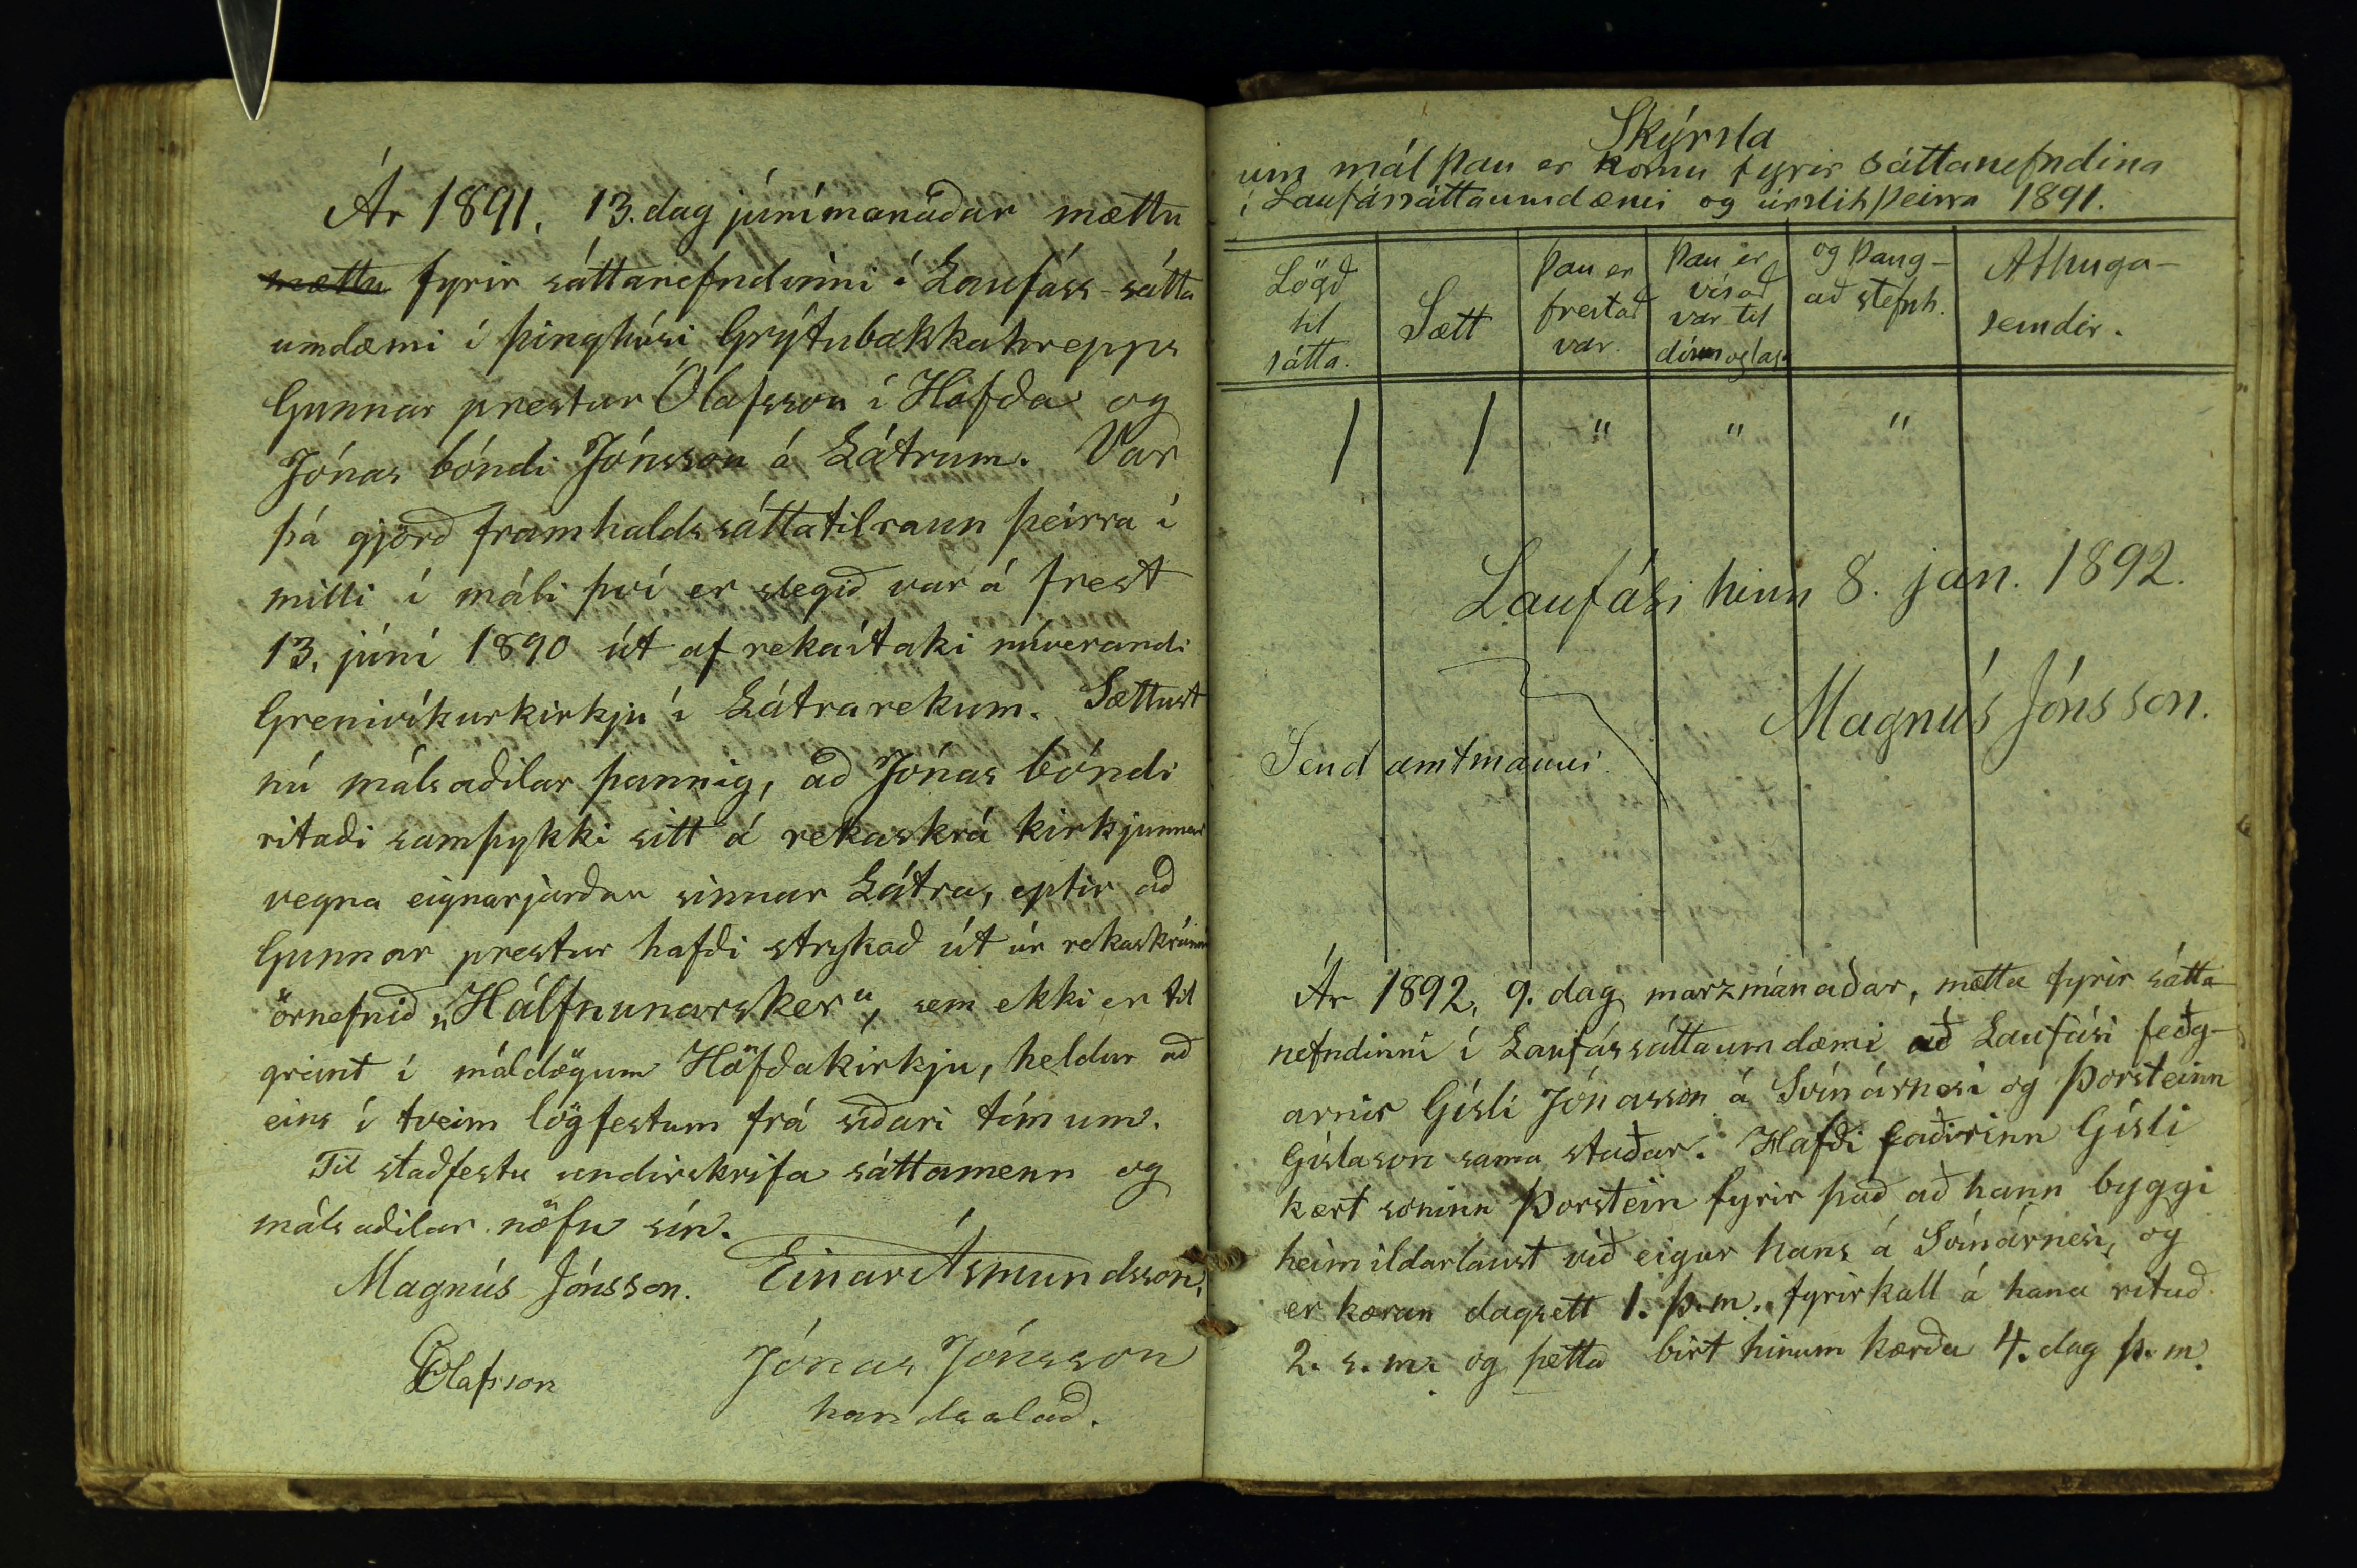 Ár 1891, 13. dag júnímanaðar mættu
mættu fyrir sáttanefndinni í Laufáss-sátta
umdæmi í þinghúsi Grýtubakkahrepps
Gunnar prestur Ólafsson í Höfða og
Jónas bóndi Jónsson á Látrum. Var
þá gjörð framhaldssáttatilraun þeirra í
milli í máli því er slegið var á frest
13. júní 1890 út af rekaítaki núverandi
Grenivíkurkirkju í Látrarekum. Sættust
nú málsaðilar þannig, að Jónas bóndi
ritaði samþykki sitt á rekaskrá kirkjunnar
vegna eignarjarðar sinnar Látra, eptir að
Gunnar prestur hafði strykað út úr rekaskránni
örnefnið „Hálfnunarsker“, sem ekki er til
greint í máldögum Höfðakirkju, heldur að
eins í tveim lögfestum frá síðari tímum.
Til staðfestu undirskrifa sáttamenn og
málsaðilar nöfn sín.
Magnús Jónsson. Einar Ásmundsson.
GOlafsson Jónas Jónsson
handsalað.
Skýrsla
um mál þau er komu fyrir sáttanefndina
í Laufássáttaumdæmi og úrslit þeirra 1891.
Lögð
til
sátta.
Sætt
þau er
frestað
var.
þau er
vísað
var til
dóms og laga
og þang-
að stefnh.
Athuga-
semdir.
1 1 " " "
Laufási hinn 8. jan. 1892.
Magnús Jónsson.
Send amtmanni.
Ár 1892, 9. dag marzmánaðar, mættu fyrir sátta
nefndinni í Laufássáttaumdæmi að Laufási feðg-
arnir Gísli Jónasson á Svínárnesi og Þorsteinn
Gíslason sama staðar. Hafði faðirinn Gísli
kært soninn Þorstein fyrir það að hann byggi
heimildarlaust við eigur hans á Svínárnesi, og
er kæran dagsett 1. þ.m., fyrirkall á hana ritað
2. s. m. og þetta birt hinum kærða 4. dag þ. m.